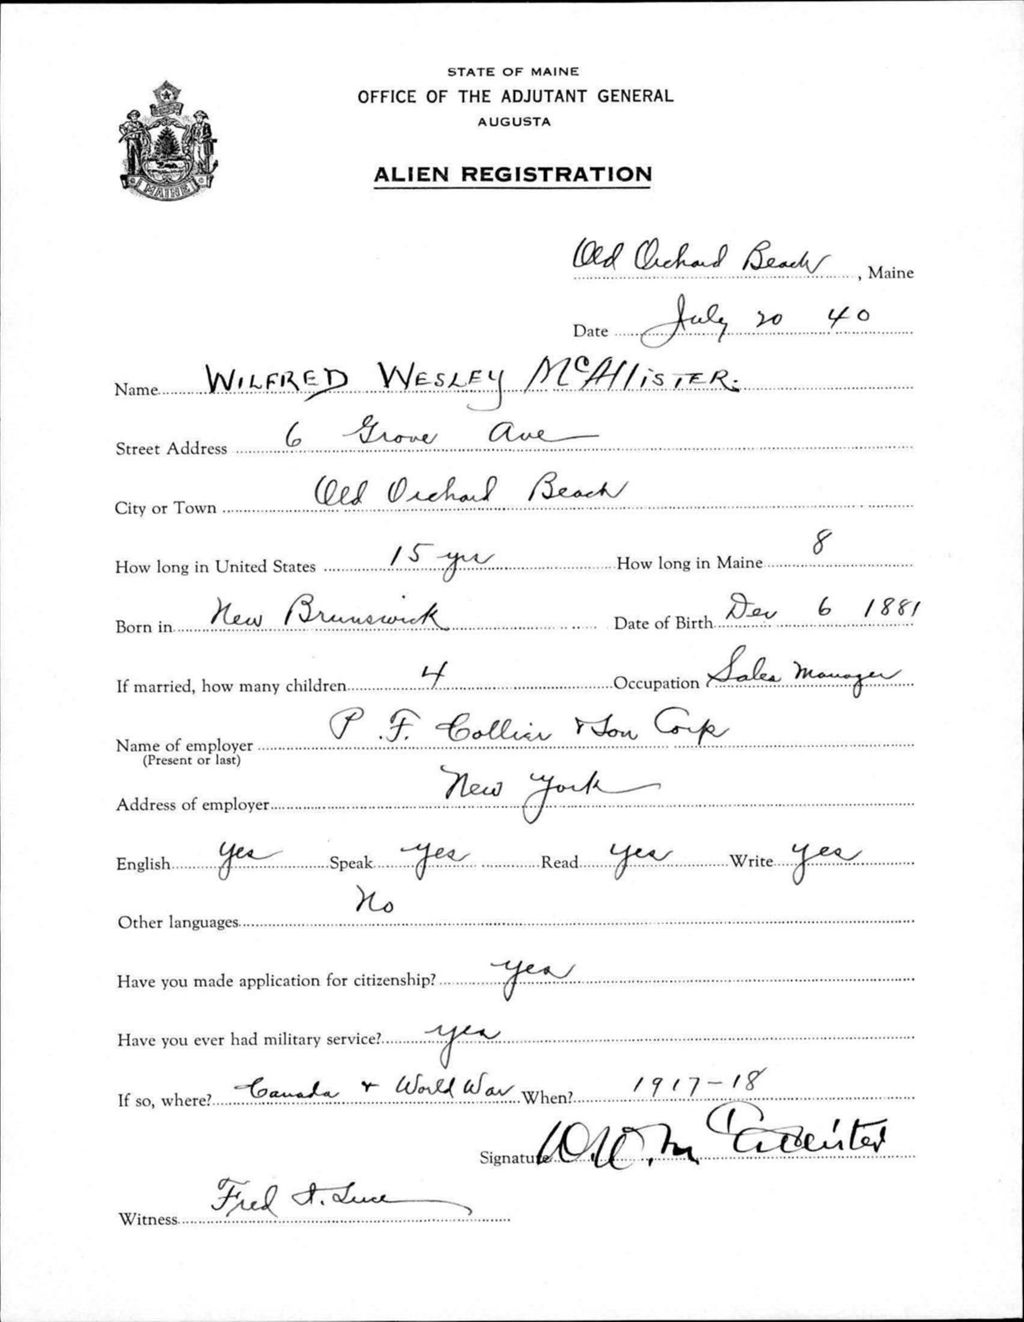 STATE OF MAINE
OFFICE OF THE ADJUTANT GENERAL
AUGUSTA
ALIEN REGISTRATION
MAINE
Old Orchard Beach, Maine
Date July 20 40
Name WILFRED WESLEY McAllisTER.
Street Address 6 Grove Ave
City or Town Old Orchard Beach
How long in United States 15 yrs How long in Maine 8
Born in New Brunswick Date of Birth Dec 6 1881
If married, how many children 4 Occupation Sales Manager
Name of employer P. F. Collier & Son Corp
(Present or last)
Address of employer New York
English Yes Speak Yes Read Yes Write Yes
Other languages No
Have you made application for citizenship? Yes
Have you ever had military service? Yes
If so, where? Canada & World War When? 1917-18
Signature W. W. McCallister
Witness Fred I. Luce